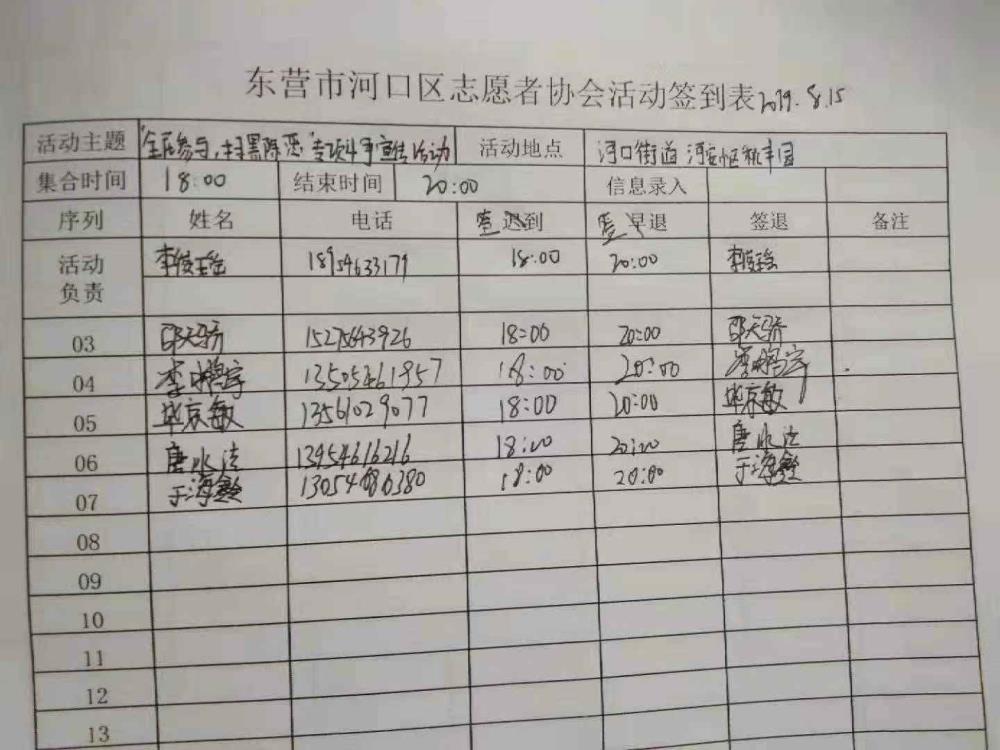 东营市河口区志愿者协会活动签到表 2019.8.15
活动主题 "全民参与,扫黑除恶"专项斗争宣传活动 活动地点 河口街道
集合时间 18:00 结束时间 20:00 信息录入
序列 姓名 电话 迟到 早退 签退 备注
活动负责 18954633179 18:00 20:00
03 邵天骄 15275643926 18:00 20:00 邵天骄
04 13505461957 18:00 20:00
05 毕京敏 13561029077 18:00 20:00 毕京敏
06 唐水法 13954616216 18:00 20:00 唐水法
07 18:00 20:00
08
09
10
11
12
13